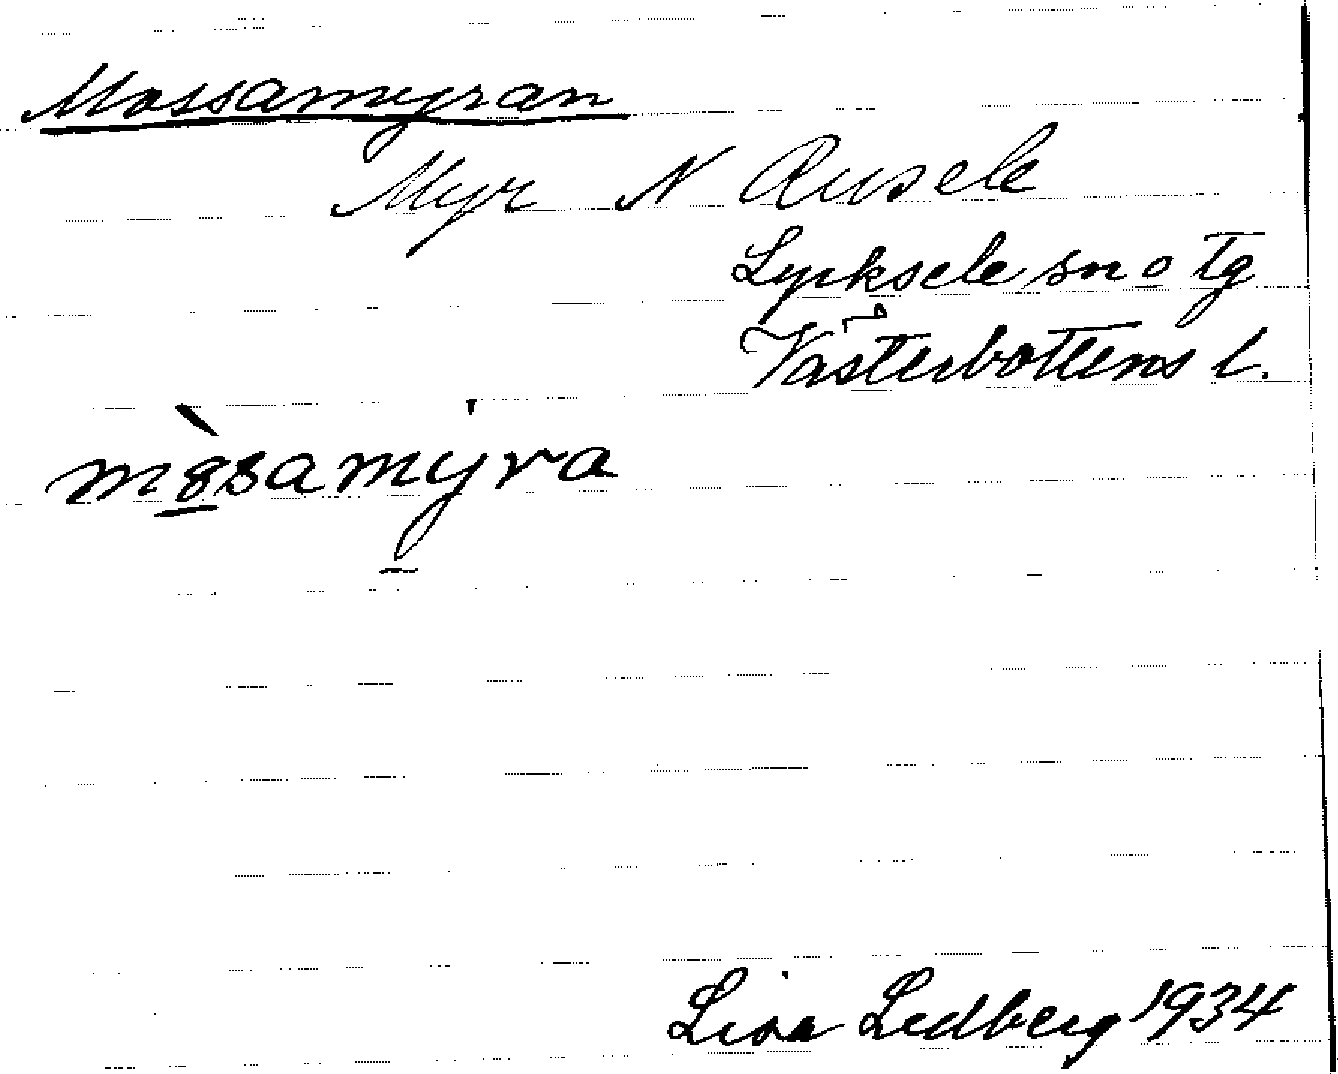 Mossamyran
Myr N Rusele
Lycksele sn o tg
Västerbottens l.
Lisa Lidberg 1934